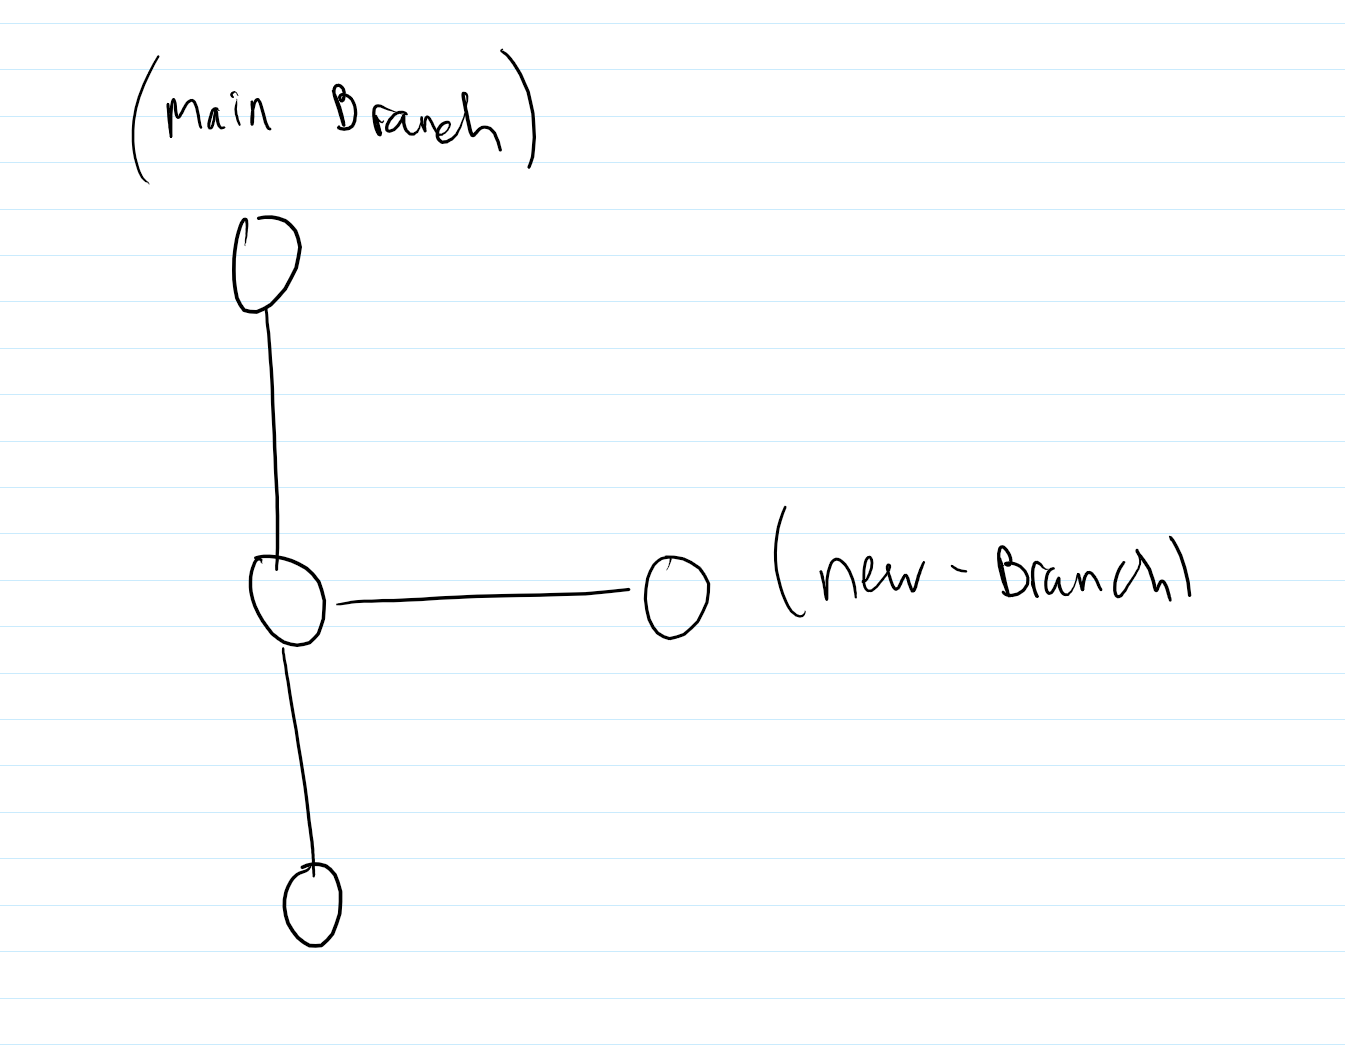 (Main Branch)
(new-Branch)